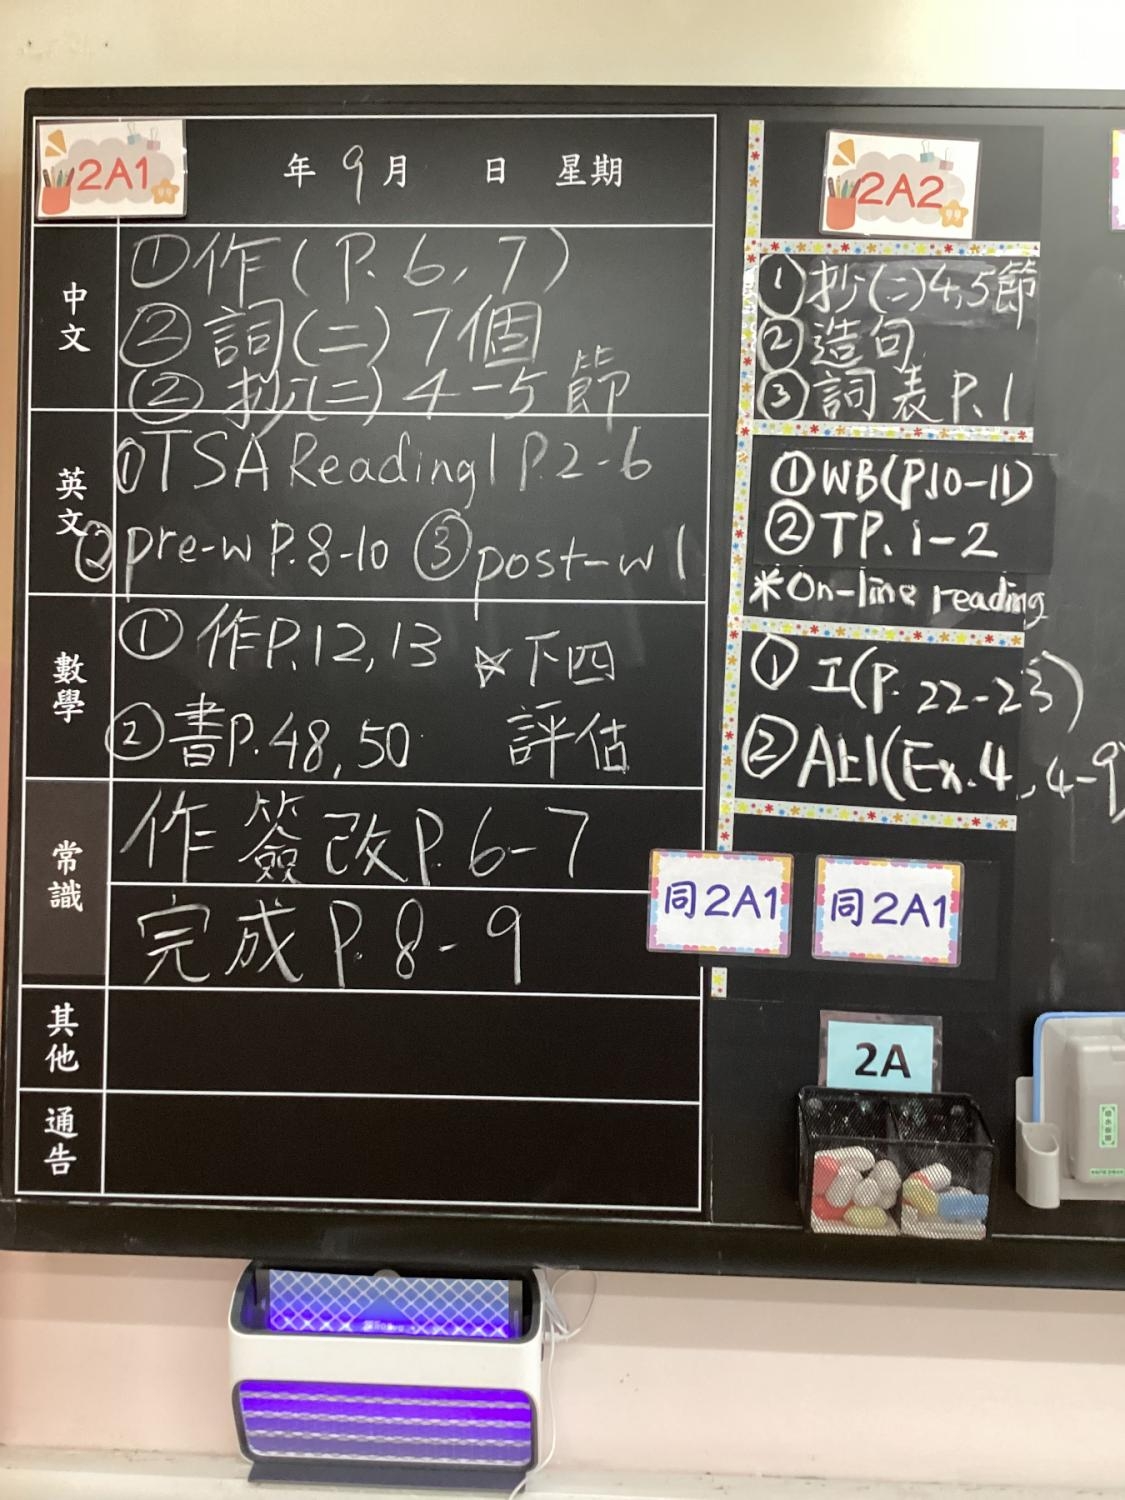 2A1
年 9月 日 星期
中文
①作(P. 6, 7)
②詞(二) 7個
②抄(二) 4-5節
英文
①TSA Reading1 P.2-6
②pre-w P.8-10 ③post-w 1
數學
①作P.12,13 ☆下四
②書P.48,50 評估
常識
作 簽改P.6-7
完成P.8-9
其他
通告
2A2
99
①抄(二)4,5節
②造句
③詞表P.1
①WB(P.10-11)
②TP.1-2
*On-line reading
①工(P. 22-23)
②A上1(Ex.4, 4-9)
同2A1
同2A1
2A